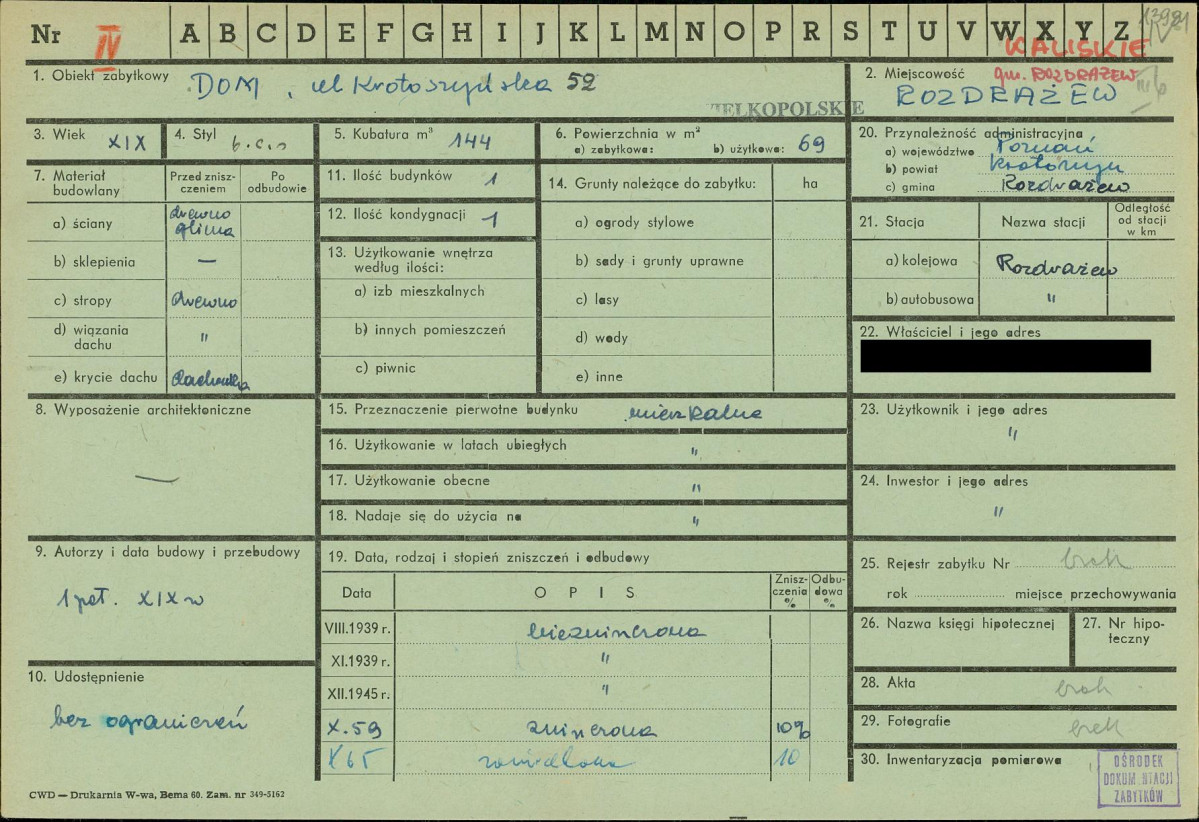 Nr IV A B C D E F G H I J K L M N O P R S T U V W X Y Z
KALISKIE
1. Obiekt zabytkowy DOM, ul Krotoszyńska 52
WIELKOPOLSKIE
2. Miejscowość gm. ROZDRAŻEW
ROZDRAŻEW
3. Wiek XIX
4. Styl b.c.s
5. Kubatura m³ 144
6. Powierzchnia w m²
a) zabytkowa: b) użytkowa: 69
7. Materiał budowlany
Przed zniszczeniem
Po odbudowie
a) ściany drewno
glina
b) sklepienia —
c) stropy drewno
d) wiązania dachu "
e) krycie dachu dachówka
8. Wyposażenie architektoniczne
—
9. Autorzy i data budowy i przebudowy
1 poł. XIX w
10. Udostępnienie
bez ograniczeń
11. Ilość budynków 1
12. Ilość kondygnacji 1
13. Użytkowanie wnętrza
według ilości:
a) izb mieszkalnych
b) innych pomieszczeń
c) piwnic
14. Grunty należące do zabytku: ha
a) ogrody stylowe
b) sady i grunty uprawne
c) lasy
d) wody
e) inne
15. Przeznaczenie pierwotne budynku mieszkalne
16. Użytkowanie w latach ubiegłych "
17. Użytkowanie obecne "
18. Nadaje się do użycia na "
19. Data, rodzaj i stopień zniszczeń i odbudowy
Data OPIS Zniszczenia % Odbudowa %
VIII.1939 r.
XI.1939 r. "
XII.1945 r. "
X.59 10%
X 65 10
20. Przynależność administracyjna
a) województwo Poznań
b) powiat Krotoszyn
c) gmina Rozdrażew
21. Stacja Nazwa stacji Odległość od stacji w km
a) kolejowa Rozdrażew
b) autobusowa "
22. Właściciel i jego adres
23. Użytkownik i jego adres
"
24. Inwestor i jego adres
"
25. Rejestr zabytku Nr brak
rok miejsce przechowywania
26. Nazwa księgi hipotecznej
27. Nr hipoteczny
28. Akta brak
29. Fotografie brak
30. Inwentaryzacja pomiarowa
OŚRODEK
DOKUMENTACJI
ZABYTKÓW
CWD — Drukarnia W-wa, Bema 60. Zam. nr 349-5162